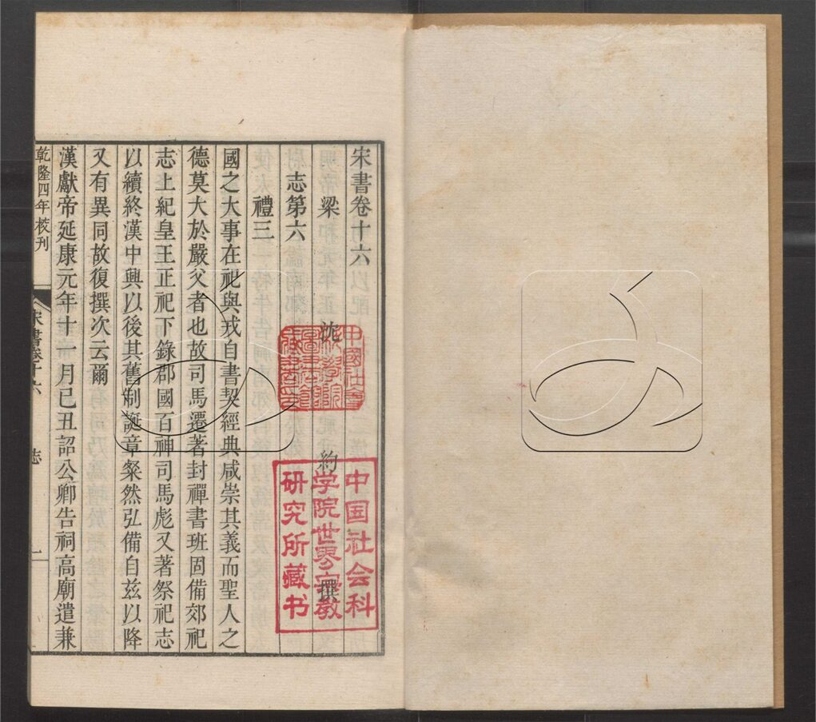 宋書卷十六
梁 沈 約 撰
志第六
禮三
國之大事在祀與戎自書契經典咸崇其義而聖人之
德莫大於嚴父者也故司馬遷著封禪書班固備郊祀
志上紀皇王正祀下錄郡國百神司馬彪又著祭祀志
以續終漢中興以後其舊制誕章粲然弘備自茲以降
又有異同故復撰次云爾
漢獻帝延康元年十一月己丑詔公卿告祠高廟遣兼
乾隆四年校刊
宋書卷十六
志
一
中國社會
科學院
圖書館
中国社会科
学院世界宗教
研究所藏书